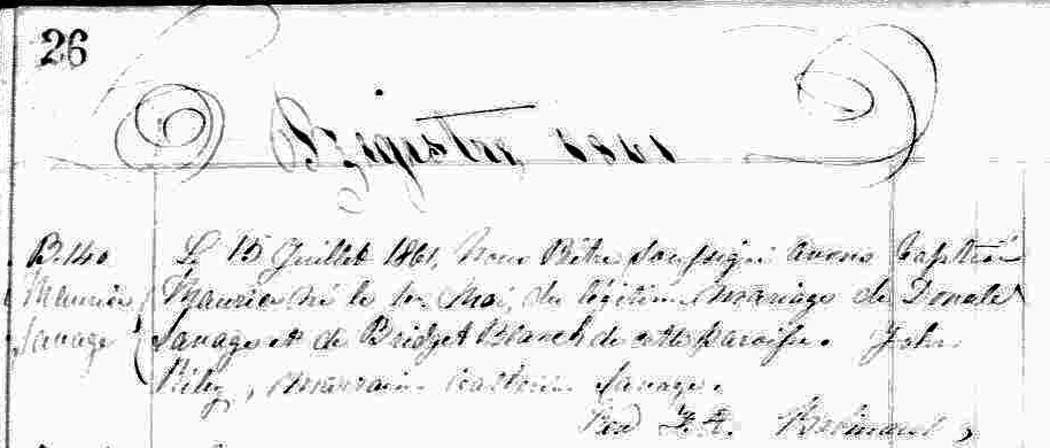 26
Registre 1861
B. 140 Le 15 Juillet 1861, Nous Prêtre soussigné avons baptisé
Maurice Maurice né le 1er Mai, du légitime mariage de Donald
Savage Savage et de Bridget Blanch de cette paroisse. John
Riley, marraine Savage.